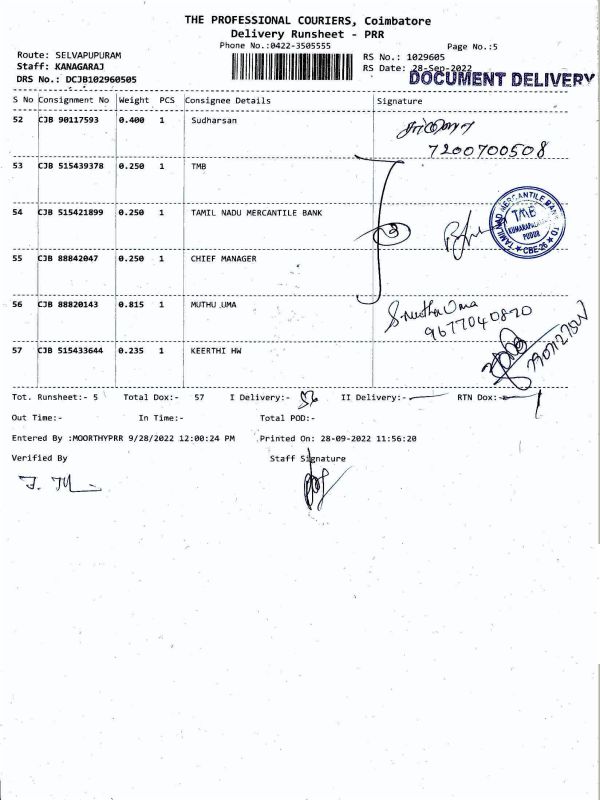 THE PROFESSIONAL COURIERS, Coimbatore
Delivery Runsheet - PRR
Phone No.:0422-3505555
Page No.:5
Route: SELVAPUPURAM
RS No.: 1029605
Staff: KANAGARAJ
RS Date: 28-Sep-2022
DRS No.: DCJB102960505
DOCUMENT DELIVERY
S No Consignment No Weight PCS Consignee Details Signature
52 CJB 90117593 0.400 1 Sudharsan
7200700508
53 CJB 515439378 0.250 1 TMB
54 CJB 515421899 0.250 1 TAMIL NADU MERCANTILE BANK
3
TAMILNAD MERCANTILE BANK LTD
TMB
PUDUR
CBE-26
55 CJB 88842047 0.250 1 CHIEF MANAGER
56 CJB 88820143 0.815 1 MUTHU UMA
9677040820
57 CJB 515433644 0.235 1 KEERTHI HW
Tot. Runsheet:- 5 Total Dox:- 57 I Delivery:- 56 II Delivery:- RTN Dox:- 1
Out Time:- In Time:- Total POD:-
Entered By :MOORTHYPRR 9/28/2022 12:00:24 PM Printed On: 28-09-2022 11:56:20
Verified By Staff Signature